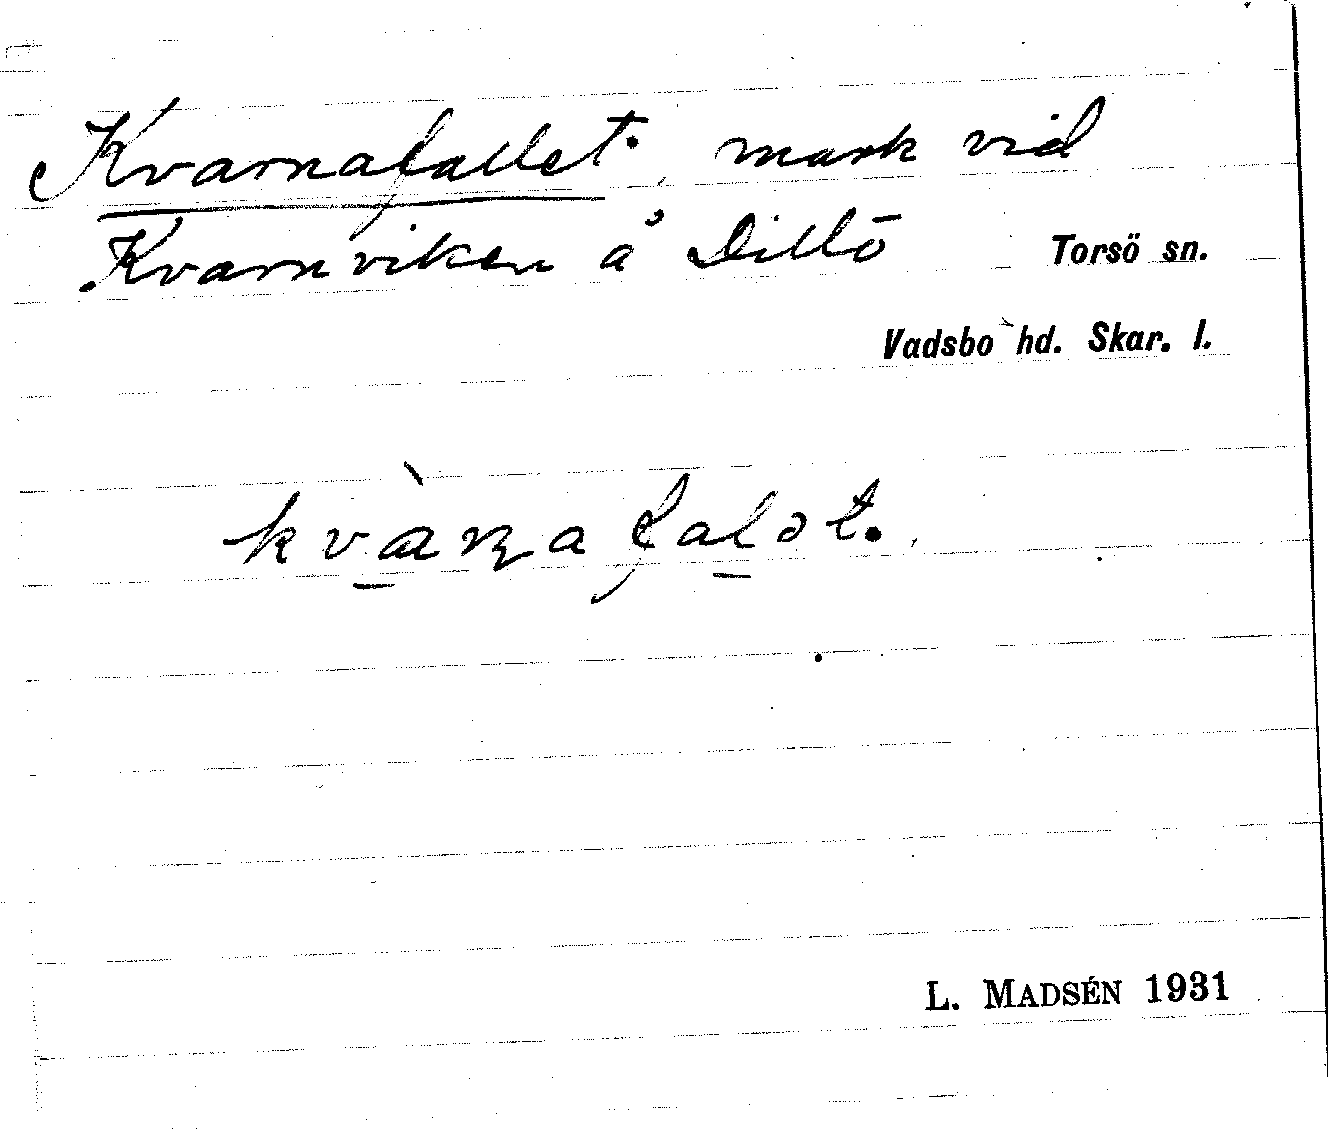 Kvarnafallet, mark vid
Kvarnviken å Dillö Torsö sn.
Vadsbo hd. Skar. l.
kvàṉafalət.
L. MADSÉN 1931